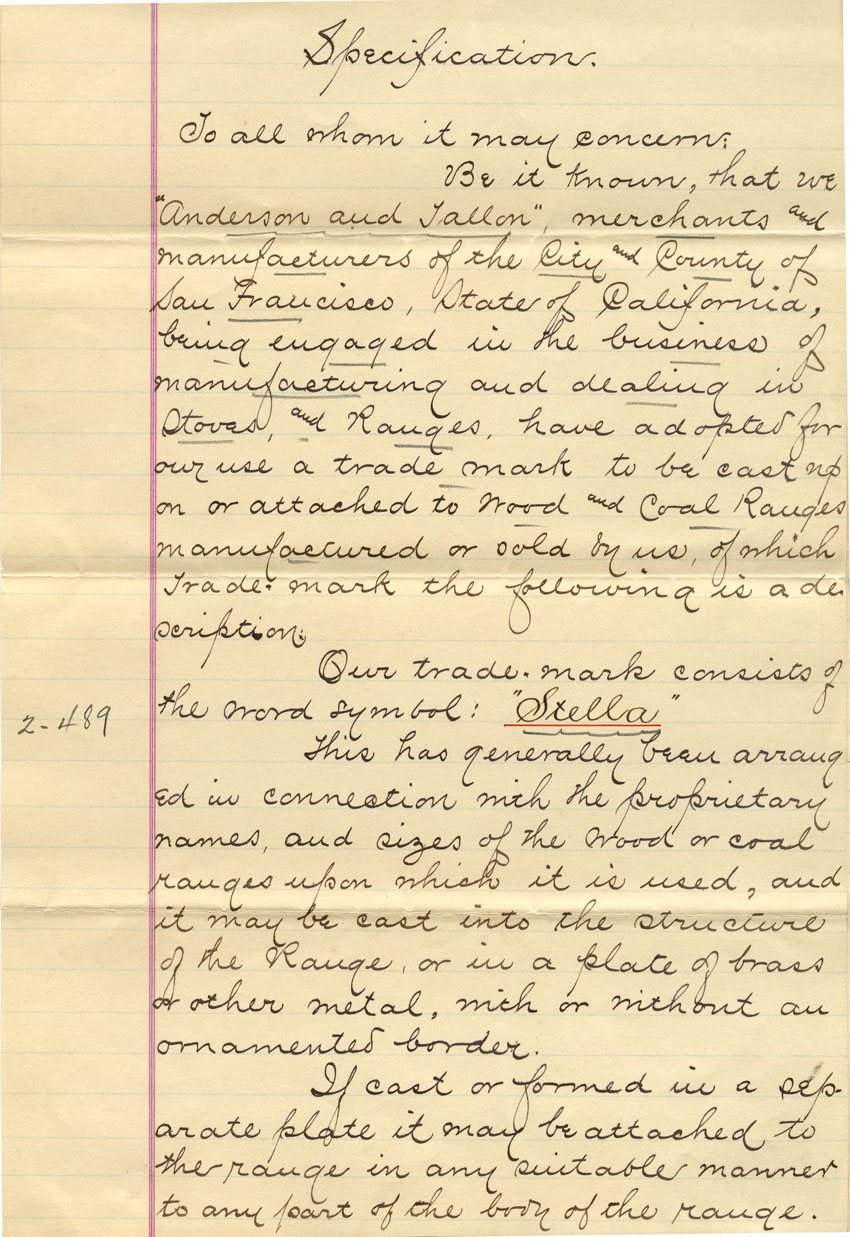 Specification.
To all whom it may concern:
Be it known, that we
"Anderson and Tallon", merchants and
manufacturers of the City and County of
San Francisco, State of California,
being engaged in the business of
manufacturing and dealing in
Stoves, and Ranges, have adopted for
our use a trade mark to be cast up
on or attached to Wood and Coal Ranges
manufactured or sold by us, of which
Trade-mark the following is a de-
scription:
Our trade-mark consists of
the word symbol: "Stella"
2-489
This has generally been arrang
ed in connection with the proprietary
names, and sizes of the wood or coal
ranges upon which it is used, and
it may be cast into the structure
of the Range, or in a plate of brass
or other metal, with or without an
ornamented border.
If cast or formed in a sep-
arate plate it may be attached to
the range in any suitable manner
to any part of the body of the range.